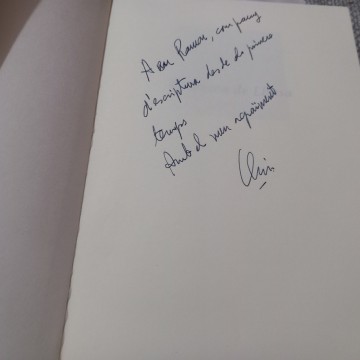 A en Ramon, company
d'escriptura desde de primers
temps
Amb el meu agraïment